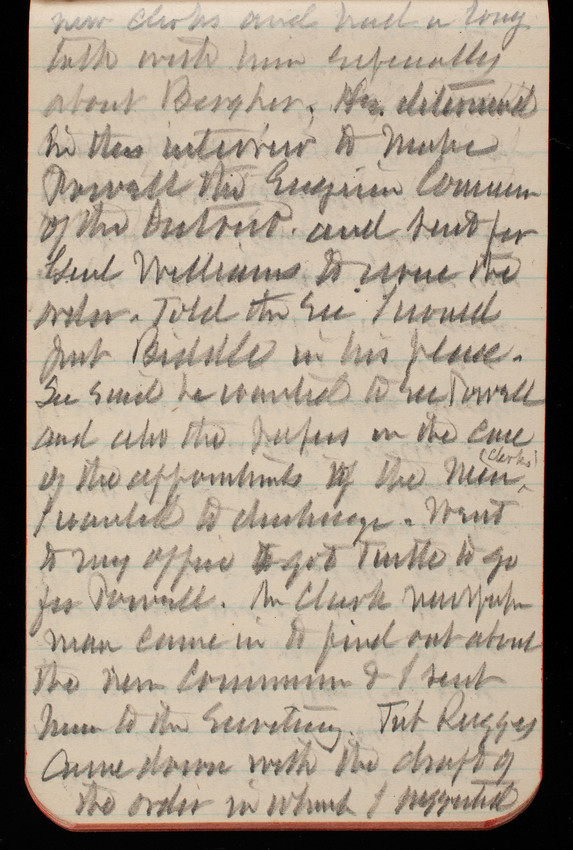 new clerks and had a long
talk with him especially
about Bergher. He determined
in this interview to make
Powell the Engineer Commr
of the District. and sent for
Genl Williams to issue the
order. Told the Sec I would
put Biddle in his place.
Sec said he wanted to see Powell
and also the papers in the case
of the appointments of the men (clerks)
I wanted to discharge. Went
to my office & got Tuttle to go
for Powell. Mr Clark newspaper
man came in to find out about
the new Commr & I sent
him to the Secretary. Ruggles
came down with the draft of
the order in which I suggested